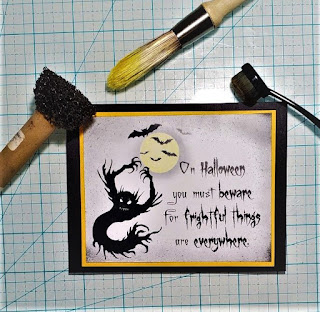 On Halloween
you must beware
for frightful things
are everywhere.